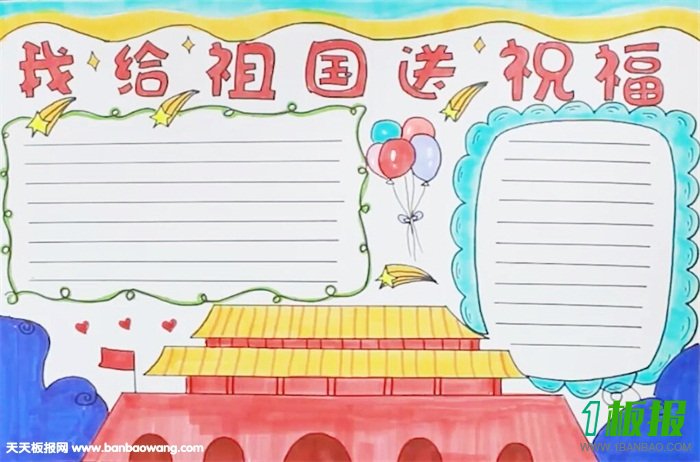 我给祖国送祝福
1板报
WWW.1BANBAO.COM
天天板报网 www.banbaowang.com